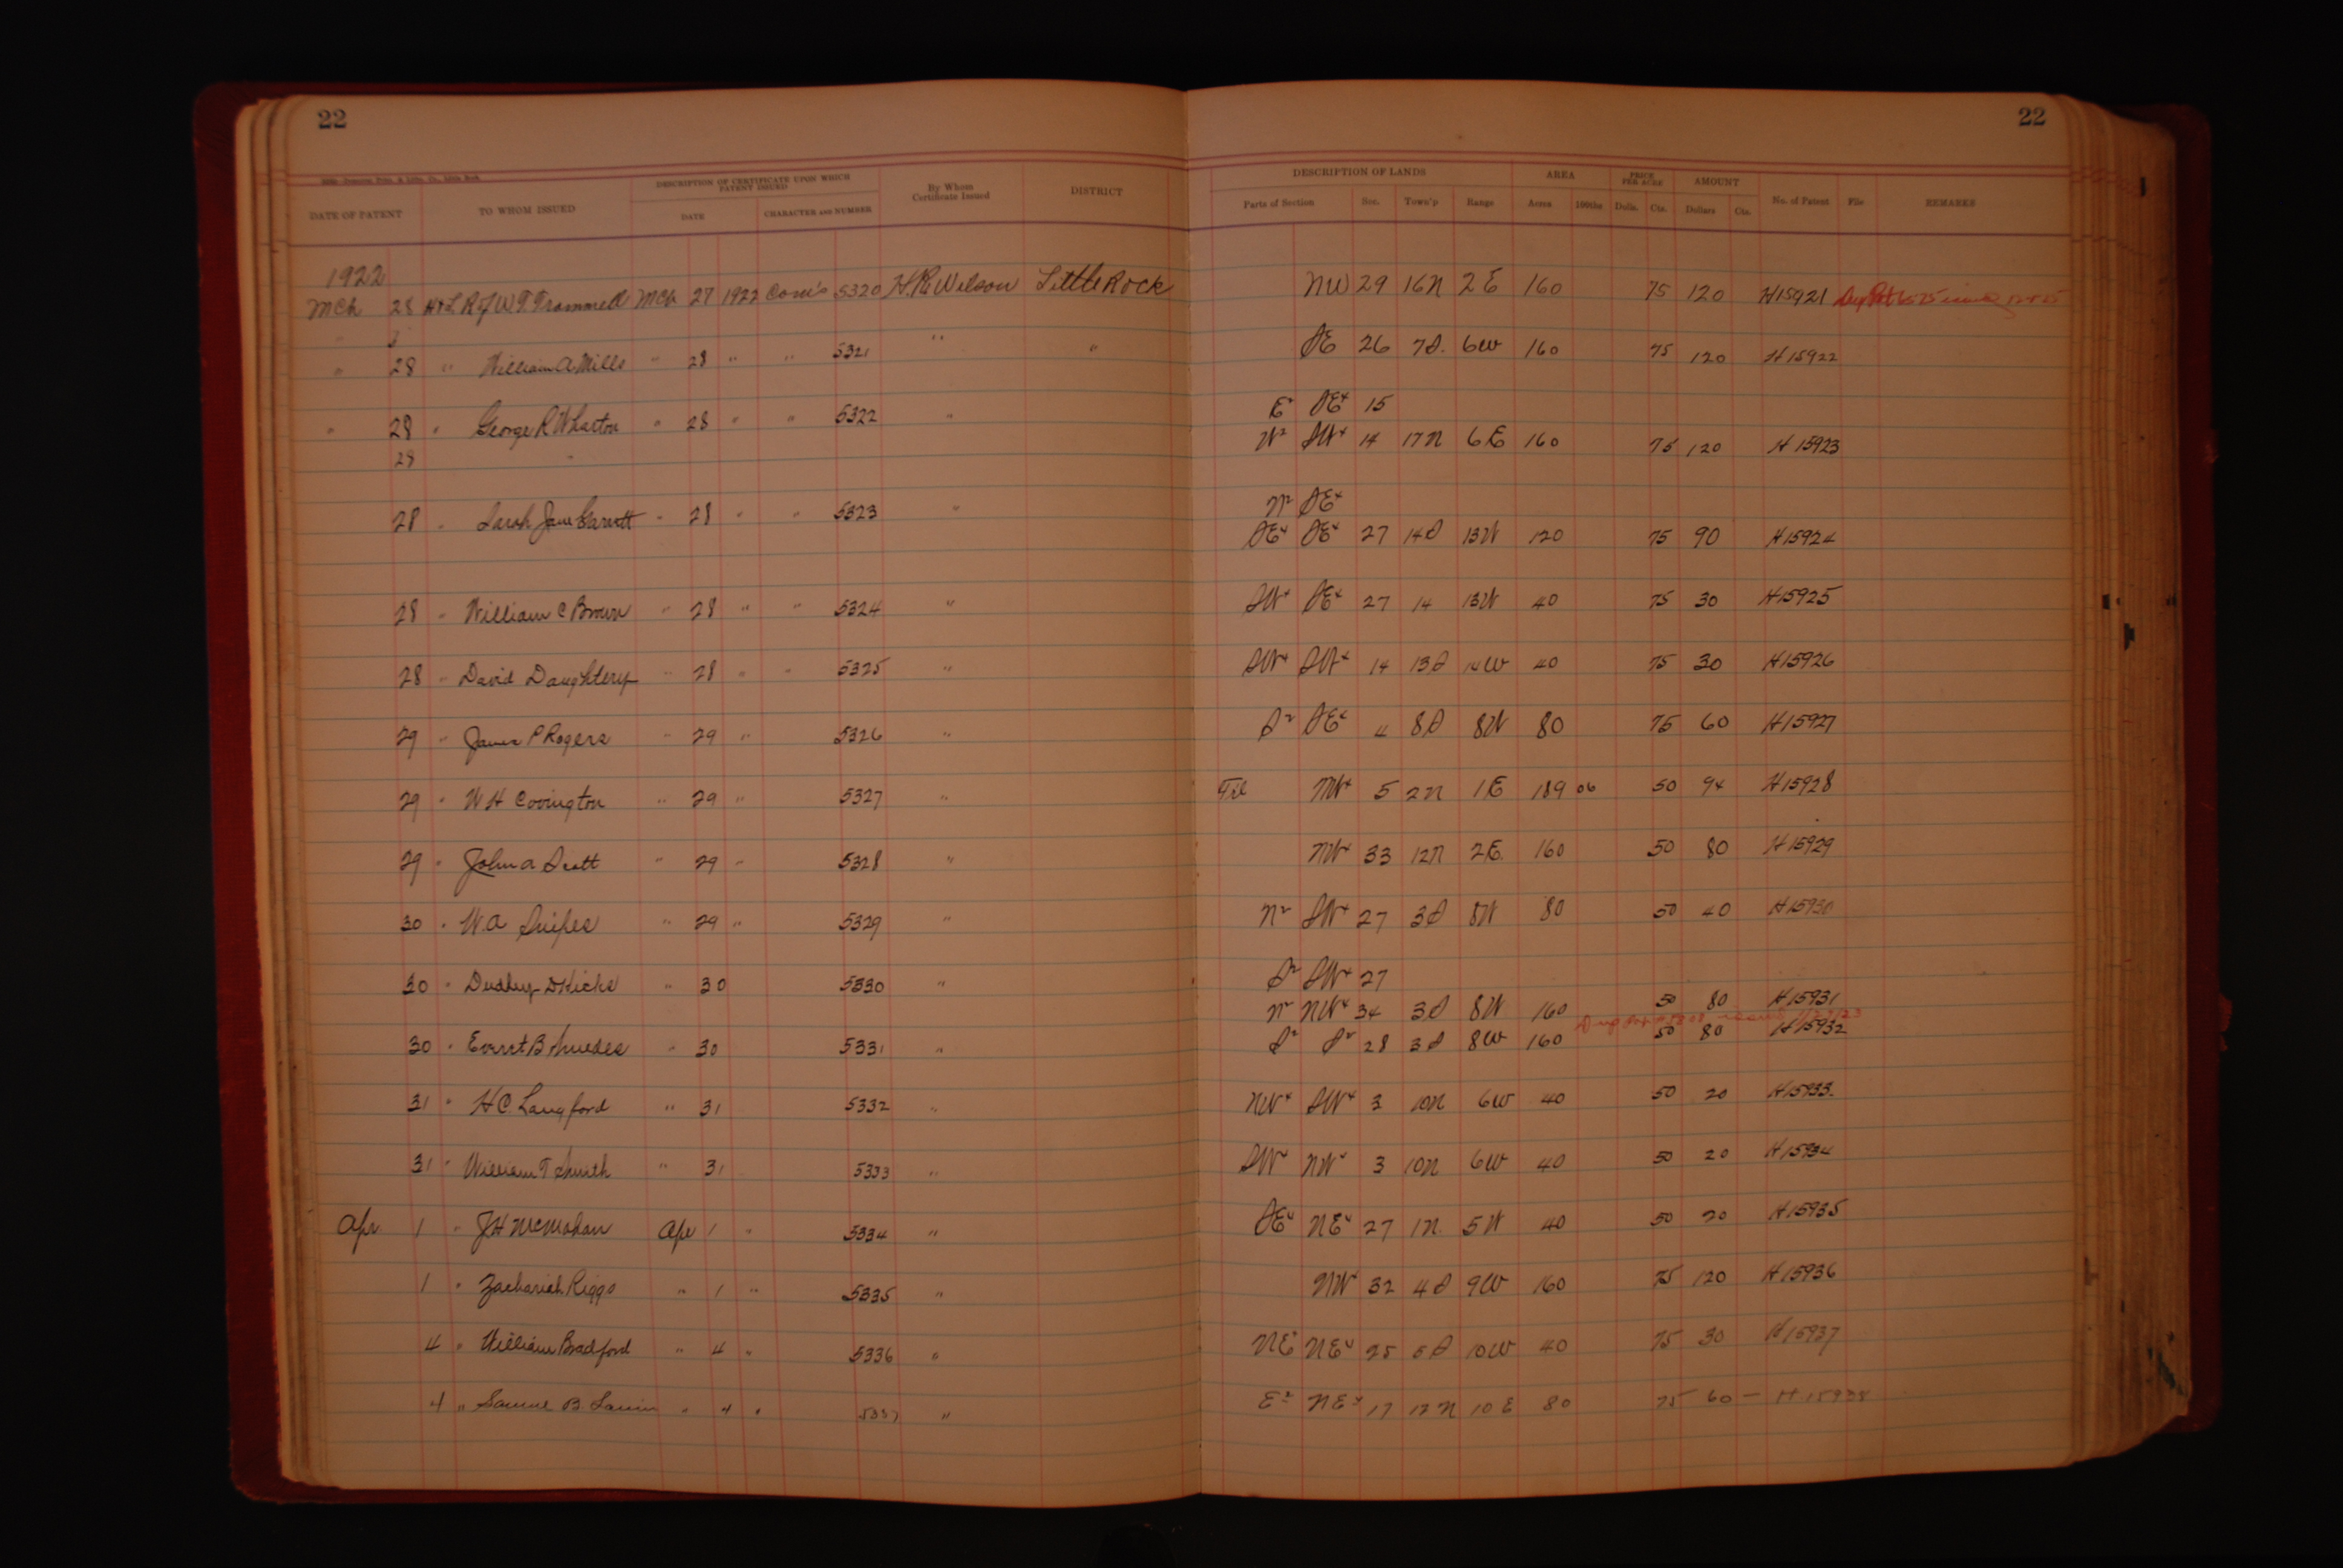 22
22
DESCRIPTION OF CERTIFICATE UPON WHICH PATENT ISSUED
DATE OF PATENT TO WHOM ISSUED DATE CHARACTER AND NUMBER By Whom Certificate Issued DISTRICT
DESCRIPTION OF LANDS AREA PRICE PER ACRE AMOUNT
Parts of Section Sec. Town'p Range Acres 100ths Dolls. Cts. Dollars Cts. No. of Patent File REMARKS
1922
Mch 28 H & L R of W.T. Trammell Mch 27 1922 Com's 5320 H.R. Wilson Little Rock NW 29 16N 2E 160 75 120 H15921
" 28 " William A Mills " 28 " " 5321 " " SE 26 7S. 6W 160 75 120 H15922
E² SE⁴ 15
" 28 " George R Wharton " 28 " " 5322 " W² SW⁴ 14 17N 6E 160 75 120 H15923
28 "
N² SE⁴
28 " Sarah Jane Garrett " 28 " " 5323 " SE⁴ SE⁴ 27 14S 13W 120 75 90 H15924
28 " William C Brown " 28 " " 5324 " SW⁴ SE⁴ 27 14 13W 40 75 30 H15925
28 " David Daughtery " 28 " " 5325 " SW⁴ SW⁴ 14 13S 14W 40 75 30 H15926
29 " James P Rogers " 29 " 5326 " S² SE⁴ 4 8S 8W 80 75 60 H15927
29 " W H Covington " 29 " 5327 " NW⁴ 5 2N 1E 189 06 50 94 H15928
29 " John A Scott " 29 " 5328 " NW⁴ 33 12N 2E. 160 50 80 H15929
30 " W.A Snipes " 29 " 5329 " N² SW⁴ 27 3S 8W 80 50 40 H15930
S² SW⁴ 27
30 " Dudley D Hicks " 30 5330 " N² NW⁴ 34 3S 8W 160 50 80 H15931
30 " Everet B " 30 5331 " S² S² 28 3S 8W 160 50 80 H15932
31 " H C Langford " 31 5332 " NW⁴ SW⁴ 3 10N 6W 40 50 20 H15933
31 " William T Smith " 31 5333 " SW⁴ NW⁴ 3 10N 6W 40 50 20 H15934
Apr 1 " J H McMahan Apr 1 " 5334 " SE⁴ NE⁴ 27 1N. 5W 40 50 20 H15935
1 " Zachariah Riggs " 1 " 5335 " NW⁴ 32 4S 9W 160 75 120 H15936
4 " William Bradford " 4 " 5336 " NE⁴ NE⁴ 25 5S 10W 40 75 30 H15937
4 " Samuel B. " 4 " 5337 " E² NE⁴ 17 12N 10E 80 75 60 — H15938